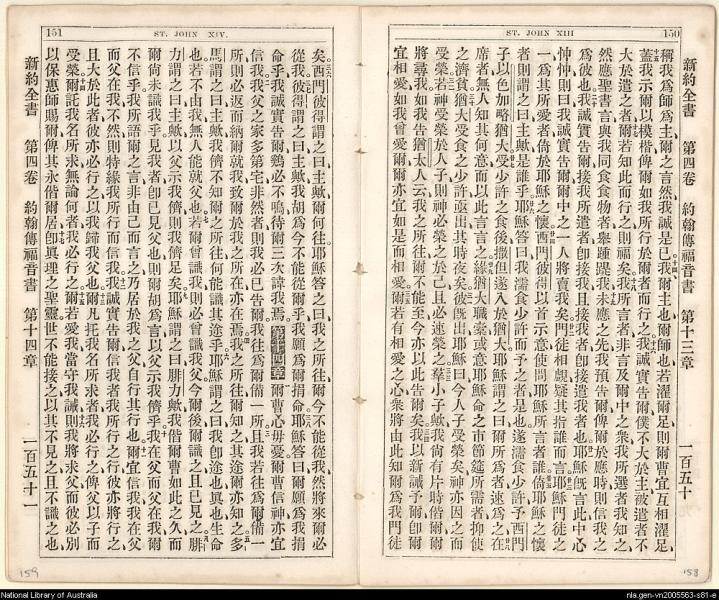 150
ST. JOHN XIII
新約全書 第四卷 約翰傳福音書 第十三章 一百五十
稱我爲師爲主爾之言然我誠是已我爾主也爾師也若濯爾足則爾曹宜互相濯足
蓋我示爾以模楷俾爾如我所行於爾者而行之我誠實告爾僕不大於主被遣者不
大於遣之者爾若知此而行之則福矣我所言者非言及爾中之衆我所選者我知之
然應聖書言與我同食食物者舉踵踶我未應之先我預告爾俾爾於應時則信我之
爲彼也我誠實告爾接我所遣者卽接我且接我者卽接遣我者也耶穌旣言此中心
忡忡則曰我誠實告爾爾中之一人將賣我矣門徒相覷疑其指誰而言耶穌門徒之
一爲其所愛者倚於耶穌之懷西門彼得以首示意使問耶穌所言者誰倚耶穌之懷
者則謂之曰主歟是誰乎耶穌答曰我濡食少許而予之者是也遂濡食少許予西門
子以色加略猶大受少許之食後撒但遂入於猶大耶穌謂之曰爾所行者速爲之在
席者無人知其何意而以此言言之緣猶大職橐或意耶穌命之市節筵所需者抑使
之濟貧猶大受食之少許亟出其時夜矣彼旣出耶穌曰今人子受榮矣神亦因之而
受榮若神受榮於人子則神必榮之於己且必速榮之羣小子歟我尙有片時偕爾爾
將尋我如我告猶太人云我之所往爾不能至今亦以此告爾矣我以新誡予爾卽爾
宜相愛如我曾愛爾爾亦宜如是而相愛爾若有相愛之心衆將由此知爾爲我門徒
158
151
ST. JOHN XIV.
矣西門彼得謂之曰主歟爾何往耶穌答曰我之所往爾今不能從我然將來爾必
從我彼得謂之曰主歟我胡爲今不能從爾乎我願爲爾捐命耶穌答曰爾願爲我捐
命乎我誠實告爾鷄必不鳴待爾三次諱我焉第十四章爾曹心毋憂爾曹信神亦宜
信我我父之家多第宅非然者則我必已告爾我往爲爾備一所且我若往爲爾備一
所則必返而納爾就我致爾於我之所在亦在焉我之所往爾知之其途爾亦知之多
馬謂之曰主歟儕不知爾之所往何能識其途乎耶穌謂之曰我卽途也眞也生命
也若不由我無人能就父也若爾曾識我則必曾識我父今爾後爾識之且已見之腓
力謂之曰主歟以父示我儕則我儕足矣耶穌謂之曰腓力歟我偕爾曹如此之久而
爾尙未識我乎見我者卽已見父也則爾胡爲言以父示我儕乎我在父而父在我爾
不信乎我所語爾之言非由己而言之乃居於我之父自行其行也爾宜信我我在父
而父在我不然則特緣我所行而信我我誠實告爾信我者我所行之行彼亦將行之
且大於此者彼亦必行之以我歸我父也爾凡託我名所求者我必行之俾父以子而
受榮爾託我名所求無論何者我必行之爾若愛我當守我誡則我將求父而彼必別
以保惠師賜爾俾其永偕爾居卽眞理之聖靈世不能接之以其不見之且不識之也
新約全書 第四卷 約翰傳福音書 第十四章 一百五十一
159
National Library of Australia
nla.gen-vn2005563-s81-e